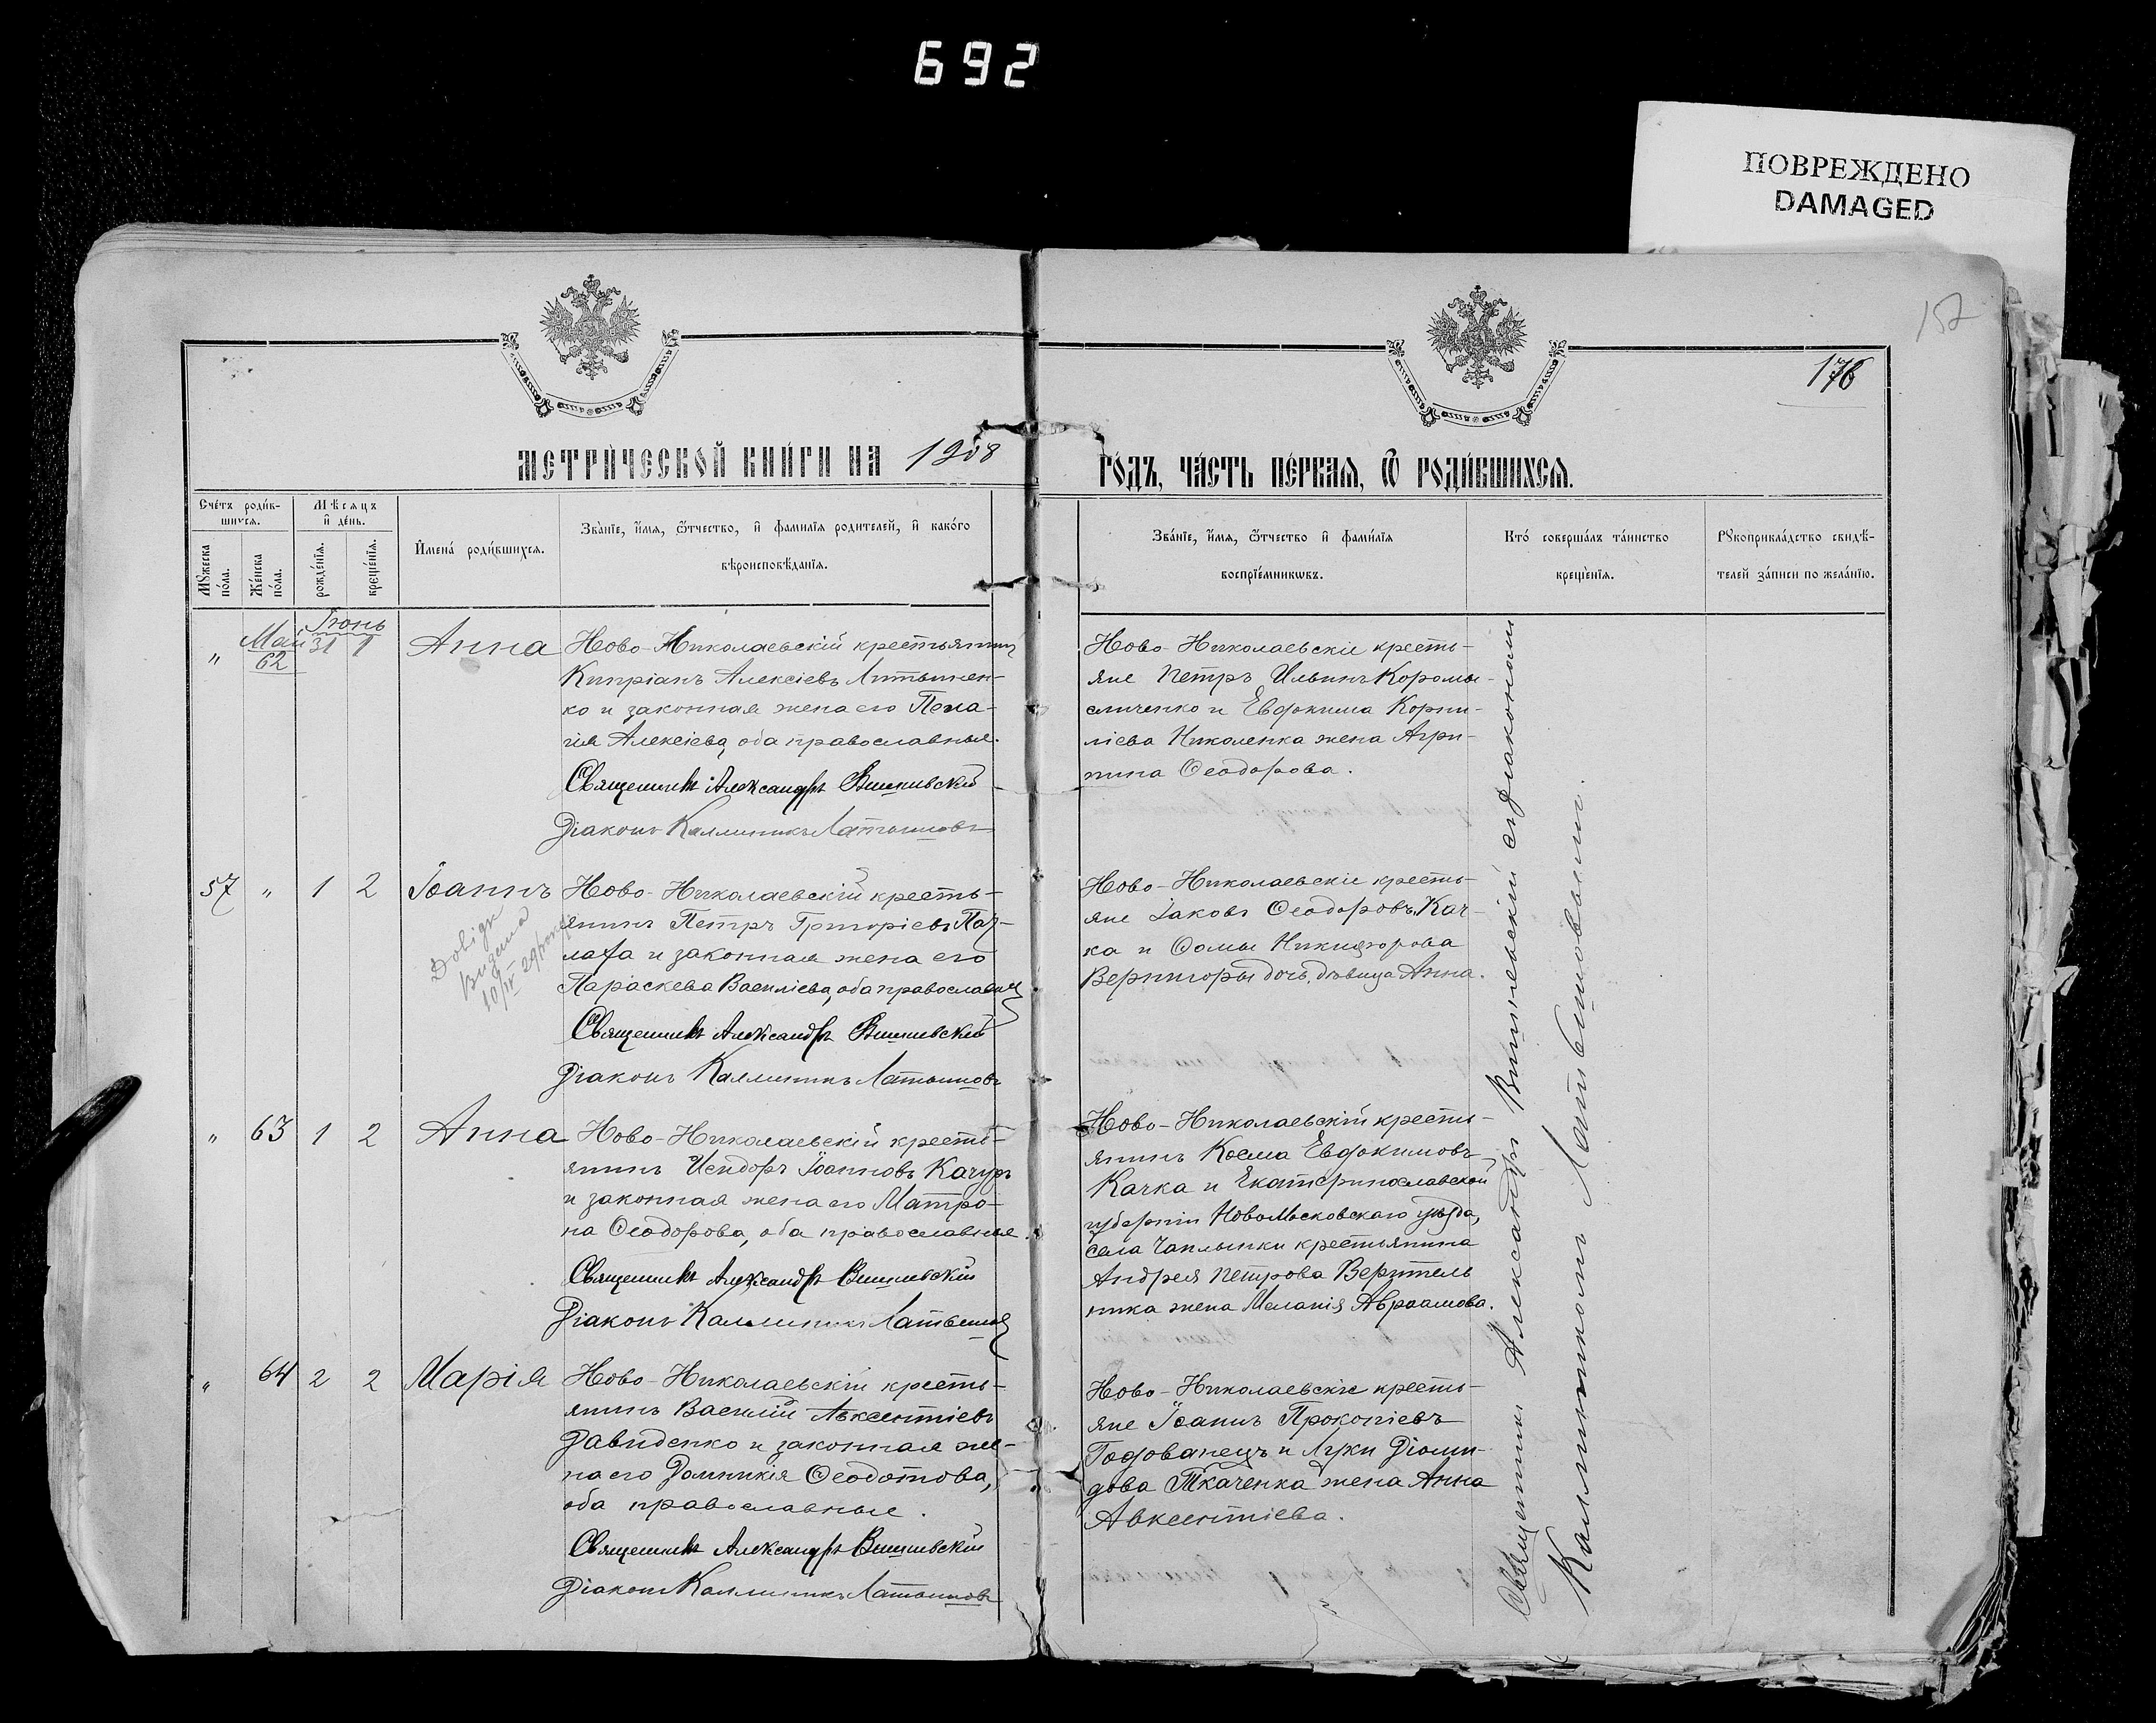 692
ПОВРЕЖДЕНО
DAMAGED
157
176
МЕТРИ́ЧЕСКОЙ КНИ́ГИ НА 1908
ГО́ДЪ, ЧА́СТЬ ПЕ́РВАЯ, Ѿ РОДИ́ВШИХСЯ.
Счéтъ роди́в-
шихся.
Мѣсяцъ
и҆ дéнь.
Мꙋжеска
по́ла.
Жéнска
по́ла.
рождéнїя.
крещéнїя.
И҆мена́ роди́вшихся.
Зва́нїе, и҆́мя, ѻ҆́тчество, и҆ фамилїя родителей, и҆ како́го
вѣроисповѣ́данїя.
Зва́нїе, и҆́мя, ѻ҆́тчество и҆ фами́лїя
воспрїе́мникѡвъ.
Кто́ соверша́лъ та́инство
крещéнїя.
Рꙋкоприкла́дство свидѣ́-
телей за́писи по жела́нїю.
Май Іюнь
" 62 31 1 Анна
Ново-Николаевскій крестьянинъ
Кипріанъ Алексіевъ Литвинен-
ко и законная жена его Пела-
гія Алексіева, оба православные.
Священникъ Александръ Вишневскій
Діаконъ Каллиникъ Латышовъ
Ново-Николаевскіе кресть-
яне Петръ Ильинъ Коромы-
сличенко и Евфокима Корни-
ліева Николенка жена Агри-
пина Ѳеодорова.
57 " 1 2 Іоаннъ
Ново-Николаевскій кресть-
янинъ Петръ Григоріевъ
и законная жена его
Параскева Василіева, оба православные
Священникъ Александръ Вишневскій
Діаконъ Каллиникъ Латышовъ
видана
10/IV 29 року
Ново-Николаевскіе кресть-
яне Іаковъ Ѳеодоровъ Кач-
ка и Ѳомы Никифорова
Вернигоры дочь, дѣвица Анна.
" 63 1 2 Анна
Ново-Николаевскій кресть-
янинъ Исидоръ Іоанновъ Качуръ
и законная жена его Матро-
на Ѳеодорова, оба православные.
Священникъ Александръ Вишневскій
Діаконъ Каллиникъ Латышовъ
Ново-Николаевскій кресть-
янинъ Косма Евфокимовъ
Качка и Екатеринославской
губерніи Новомосковскаго уѣзда,
села Чаплинки крестьянина
Андрея Петрова
ника жена Меланія Авраамова.
" 64 2 2 Марія
Ново-Николаевскій кресть-
янинъ Василій Авксентіевъ
Давиденко и законная же-
на его Домникія Ѳеодотова,
оба православные.
Священникъ Александръ Вишневскій
Діаконъ Каллиникъ Латышовъ
Ново-Николаевскіе кресть-
яне Іоаннъ Прокопіевъ
Годованецъ и Луки Діоми-
дова Ткаченка жена Анна
Авксентіева.
Священникъ Александръ Вишневскій съ діакономъ
Каллиникомъ Латышовымъ.